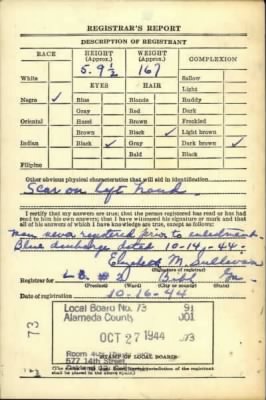 REGISTRAR'S REPORT
DESCRIPTION OF REGISTRANT
RACE HEIGHT (Approx.) WEIGHT (Approx.) COMPLEXION
5. 9½ 167
White Sallow
Light
EYES HAIR
Negro ✓ Blue Blonde Ruddy
Gray Red Dark
Oriental Hazel Brown Freckled
Brown Black ✓ Light brown
Indian Black ✓ Gray Dark brown ✓
Bald Black
Filipino
Other obvious physical characteristics that will aid in identification
Scar on left hand
I certify that my answers are true; that the person registered has read or has had
read to him his own answers; that I have witnessed his signature or mark and that
all of his answers of which I have knowledge are true, except as follows:
Man never registered prior to enlistment
Blue discharge dated 10-14-44.
Elizabeth M. Sullivan
(Signature of registrar)
Registrar for L.B. # 2 Bibb Ga.
(Precinct) (Ward) (City or county) (State)
Date of registration 10-16-44
Local Board No. 73 91
Alameda County 001
73
OCT 27 1944 73
Room
577 14th Street
OF LOCAL BOARD)